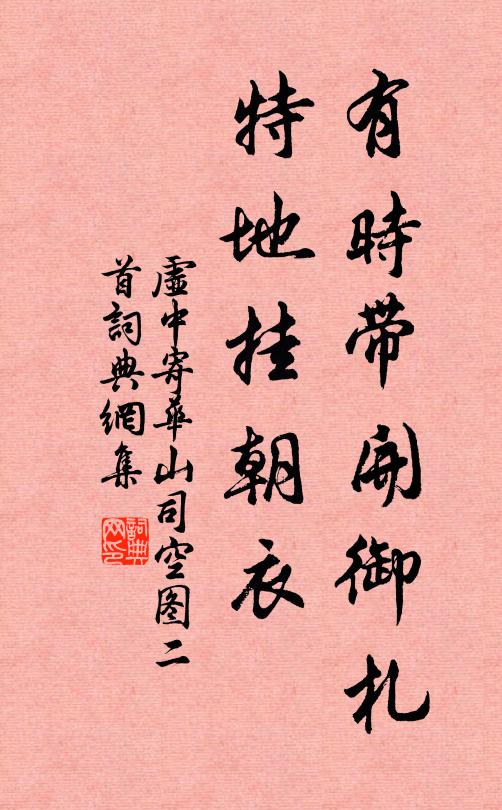 有時帶開御札
特地挂朝衣
虛中寄華山司空图二
首詞典網集
詞典网印